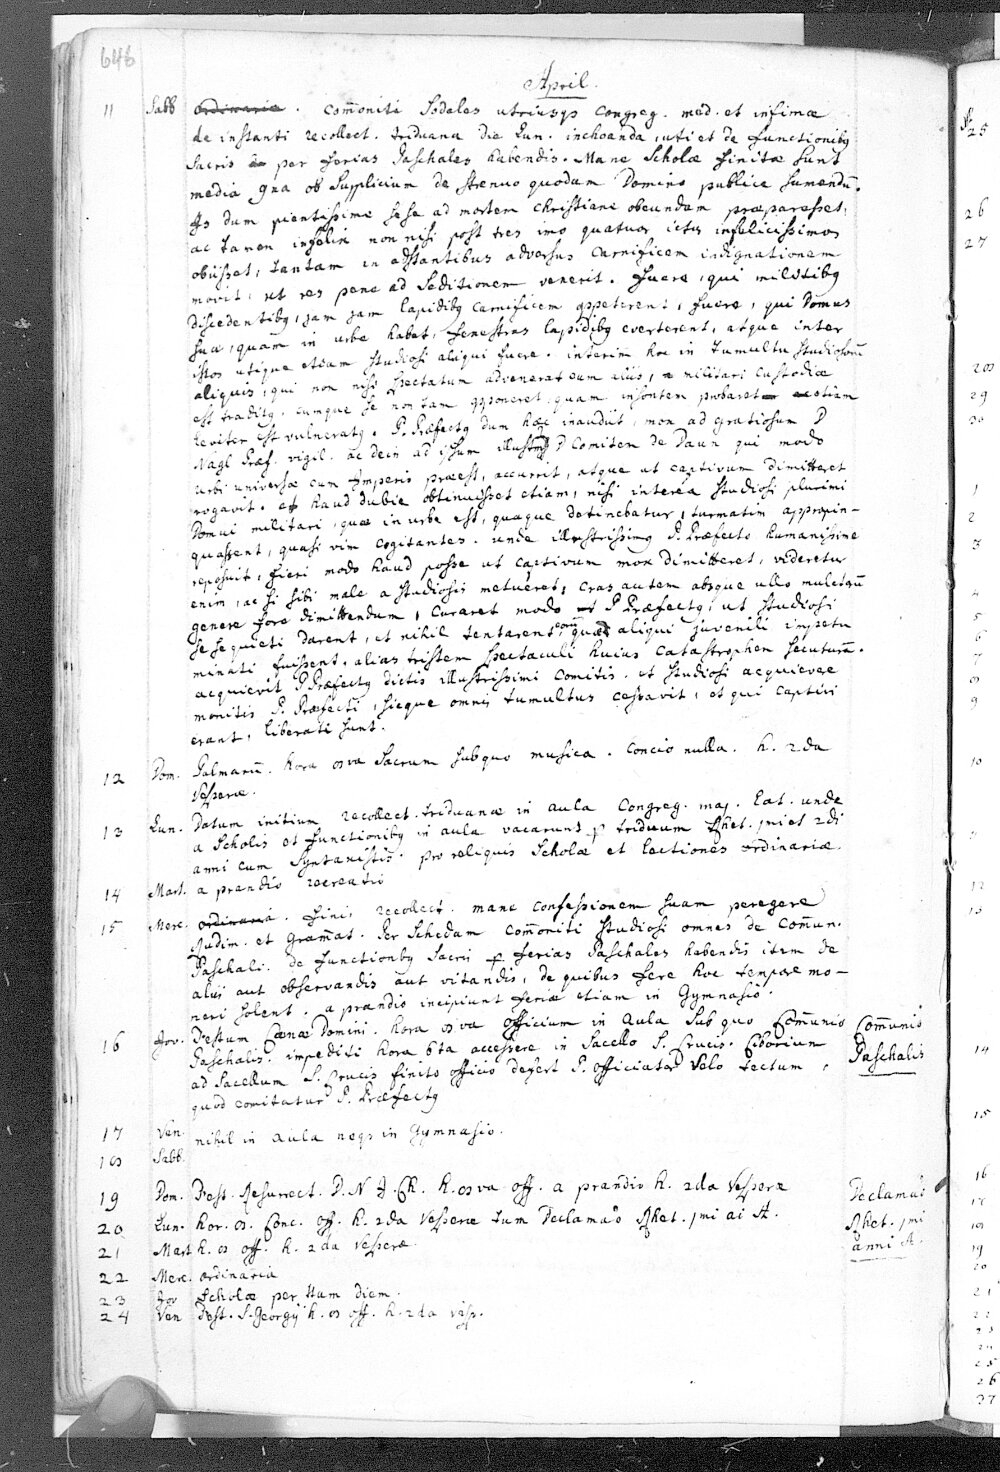 646
April.
11 Sabb. ordinaria. Com̄oniti Sodales utriusq̨ Congreg. med. et infimæ
de instanti recollect. triduana die Lun. inchoanda, uti et de functionibq
Sacris per ferias Paschales habendis. Mane Scholæ finitæ sunt
media 9na ob Supplicium de strenuo quodam Domino publice sumendū.
Is dum pientissime sese ad mortem Christiane obeundam præparasset,
ac tamen infelix non nisi post tres imo quatuor ictus infelicissimos
obiisset, tantam in adstantibus adversus Carnificem indignationem
movit, ut res pene ad Seditionem venerit. fuere, qui militibq
discedentibq, jam jam lapidibq Carnificem appeterent, fuere, qui Domus
suæ, quam in urbe habet, fenestras lapidibq everterent, atque inter
istos utique etiam Studiosi aliqui fuere. interim hoc in tumultu Studiosorū
aliquis, qui non nisi spectatum advenerat cum aliis, a militari Custodia
est traditq. cumque se non tam opponeret, quam insontem probaret etiam
leviter est vulneratq. P. Præfectq dum hæc inaudiit, mox ad gratiosum D
Nagl Præf. vigil. ac dein ad ipsum illustrm̄ D Comitem de Daun qui modo
urbi universæ cum Imperio præest, accurrit, atque ut captivum dimitteret
rogavit. et haud dubie obtinuisset etiam, nisi interea Studiosi plurimi
Domui militari, quæ in urbe est, quaque detinebatur, turmatim appropin-
quassent, quasi vim cogitantes. unde illustrissimq P. Præfecto humanissime
reposuit, fieri modo haud posse ut captivum mox dimitteret, videretur
enim, ac si sibi male a Studiosis metueret, cras autem absque ullo mulctæ
genere fore dimittendum, curaret modo P Præfectq, ut Studiosi
se se quieti darent, et nihil tentarent eorū quæ aliqui juvenili impetu
minati fuissent. alias tristem spectaculi huius Catastrophen secuturū.
acquievit P Præfectq dictis illustrissimi Comitis. et Studiosi acquievere
monitis P. Præfecti, sicque omnis tumultus cessavit, et qui captivi
erant, liberati sunt.
12 Dom. Palmarū. hora 8va Sacrum sub quo musica. Concio nulla. h. 2da
Vesperæ.
13 Lun. Datum initium recollect. triduanæ in aula Congreg. maj. Lat. unde
a Scholis et functionibq in aula vacarunt p triduum Rhet. 1mi et 2di
anni cum Syntaxistis. pro reliquis Scholæ et lectiones ordinariæ.
14 Mart. a prandio recreatio
15 Merc. ordinaria. finis recollect. mane confessionem suam peregere
Rudim. et Gram̄at. Per Schedam com̄oniti Studiosi omnes de Com̄un.
Paschali. de functionibq Sacris p ferias Paschales habendis item de
aliis aut observandis aut vitandis, de quibus fere hoc tempore mo-
neri solent. a prandio incipiunt feriæ etiam in Gymnasio.
16 Jov. Festum Cænæ Domini. hora 8va officium in Aula sub quo Com̄unio Com̄unio
Paschalis. impediti hora 6ta accessere in Sacello S. Crucis. Ciborium Paschalis
ad Sacellum S. Crucis finito officio defert P. officiator Velo tectum,
quod comitatur P. Præfectq
17 Ven. nihil in aula neq̨ in Gymnasio.
18 Sabb.
19 Dom. Fest. Resurrect. D. N J. Ch. h. 8va off. a prandio h. 2da Vesperæ Declamao
20 Lun. hor. 8. Conc. off. h. 2da Vesperæ tum Declamao Rhet. 1mi ai A. Rhet. 1mi
21 Mart h. 8 off. h. 2da Vesperæ. anni A.
22 Merc. ordinaria
23 Jov Scholæ per ttam diem.
24 Ven Fest. S. Georgij h. 8 off. h. 2da vesp.
25
26
27
28
29
30
1
2
3
4
5
6
7
8
9
10
12
13
14
15
16
17
18
19
20
21
22
23
24
25
26
27